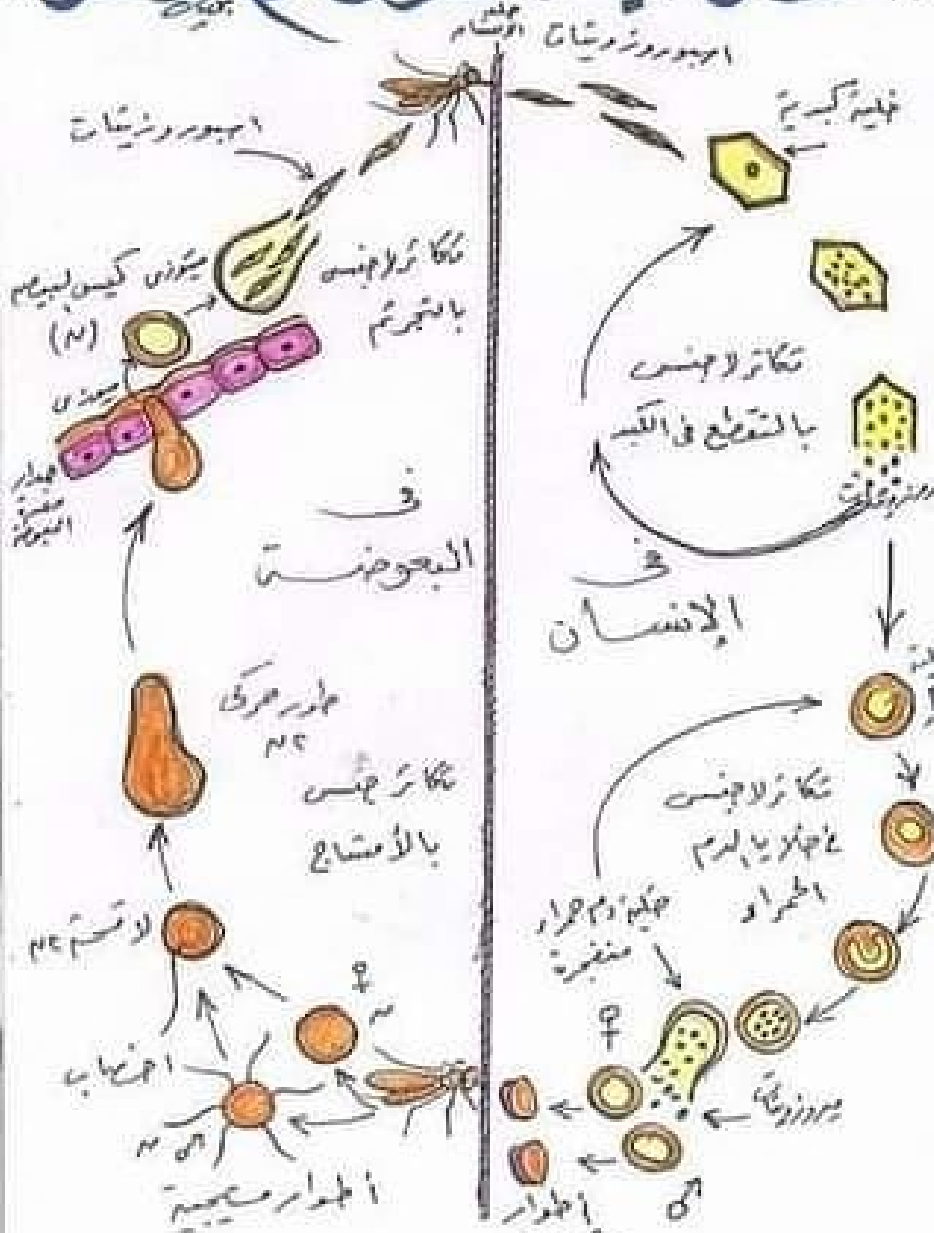 جلد الإنسان
اسبوروزيتات
خلية كبدية
تكاثر لاجنسى
بالتقطع فى الكبد
ميروزويتات
فى
الإنسان
تكاثر لاجنسى
فى خلايا الدم
الحمراء
خلية دم حمراء
منفجرة
♀
ميروزويتات
♂
أطوار
اسبوروزيتات
ميوزى كيس البيض
(ن)
تكاثر لاجنسى
بالتجرثم
ميوزى
جدار
معدة
البعوضة
فى
البعوضة
طور حركى
٢ن
تكاثر جنسى
بالأمشاج
لاقحة ٢ن
♀
ن
اخصاب
♂ ن
أطوار مشيجية